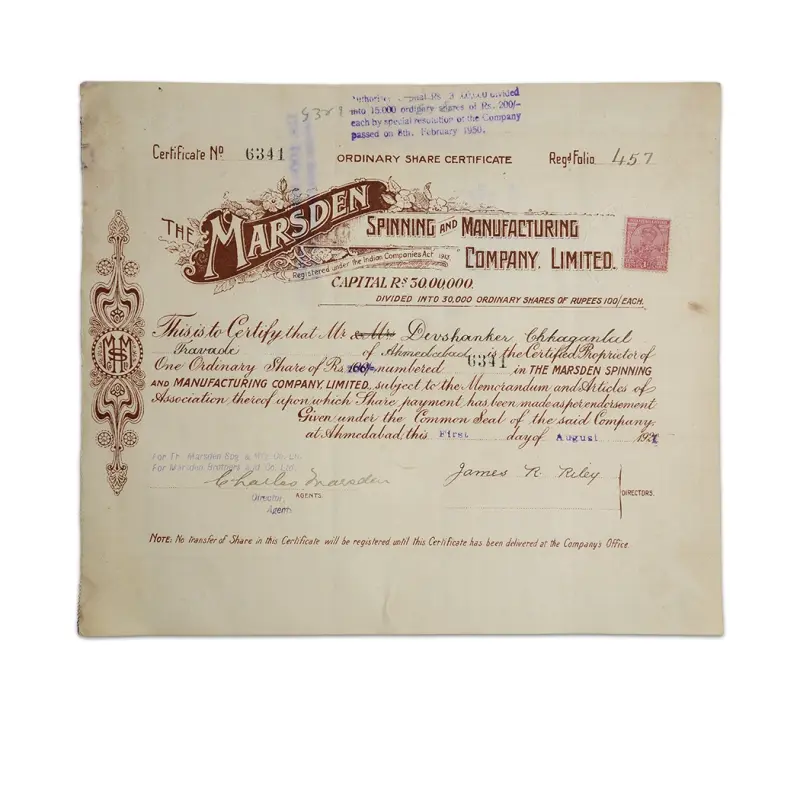 9321
Authorised Capital Rs. 3 00,000 divided
into 15,000 ordinary shares of Rs. 200/-
each by special resolution of the Company
passed on 8th. February 1950.
Certificate No 6341
ORDINARY SHARE CERTIFICATE
Regd Folio 457
THE MARSDEN SPINNING AND MANUFACTURING
COMPANY, LIMITED.
Registered under the Indian Companies Act 1913.
CAPITAL RS 30,00,000.
DIVIDED INTO 30,000 ORDINARY SHARES OF RUPEES 100/EACH.
This is to Certify, that Mr Devshanker Chhaganlal
Travade of Ahmedabad is the Certified Proprietor of
One Ordinary Share of Rs. 100/- numbered 6341 in THE MARSDEN SPINNING
AND MANUFACTURING COMPANY, LIMITED., subject to the Memorandum and Articles of
Association thereof upon which Share payment has been made as per endorsement
Given under the Common Seal of the said Company,
at Ahmedabad, this First day of August
MSH
For The Marsden Spg. & Mfg. Co. Ltd.
For Marsden Brothers & Co. Ltd.
Charles Marsden
Director,
AGENTS.
Agents
James R. Riley
DIRECTORS.
NOTE: No transfer of Share in this Certificate will be registered until this Certificate has been delivered at the Company's Office.